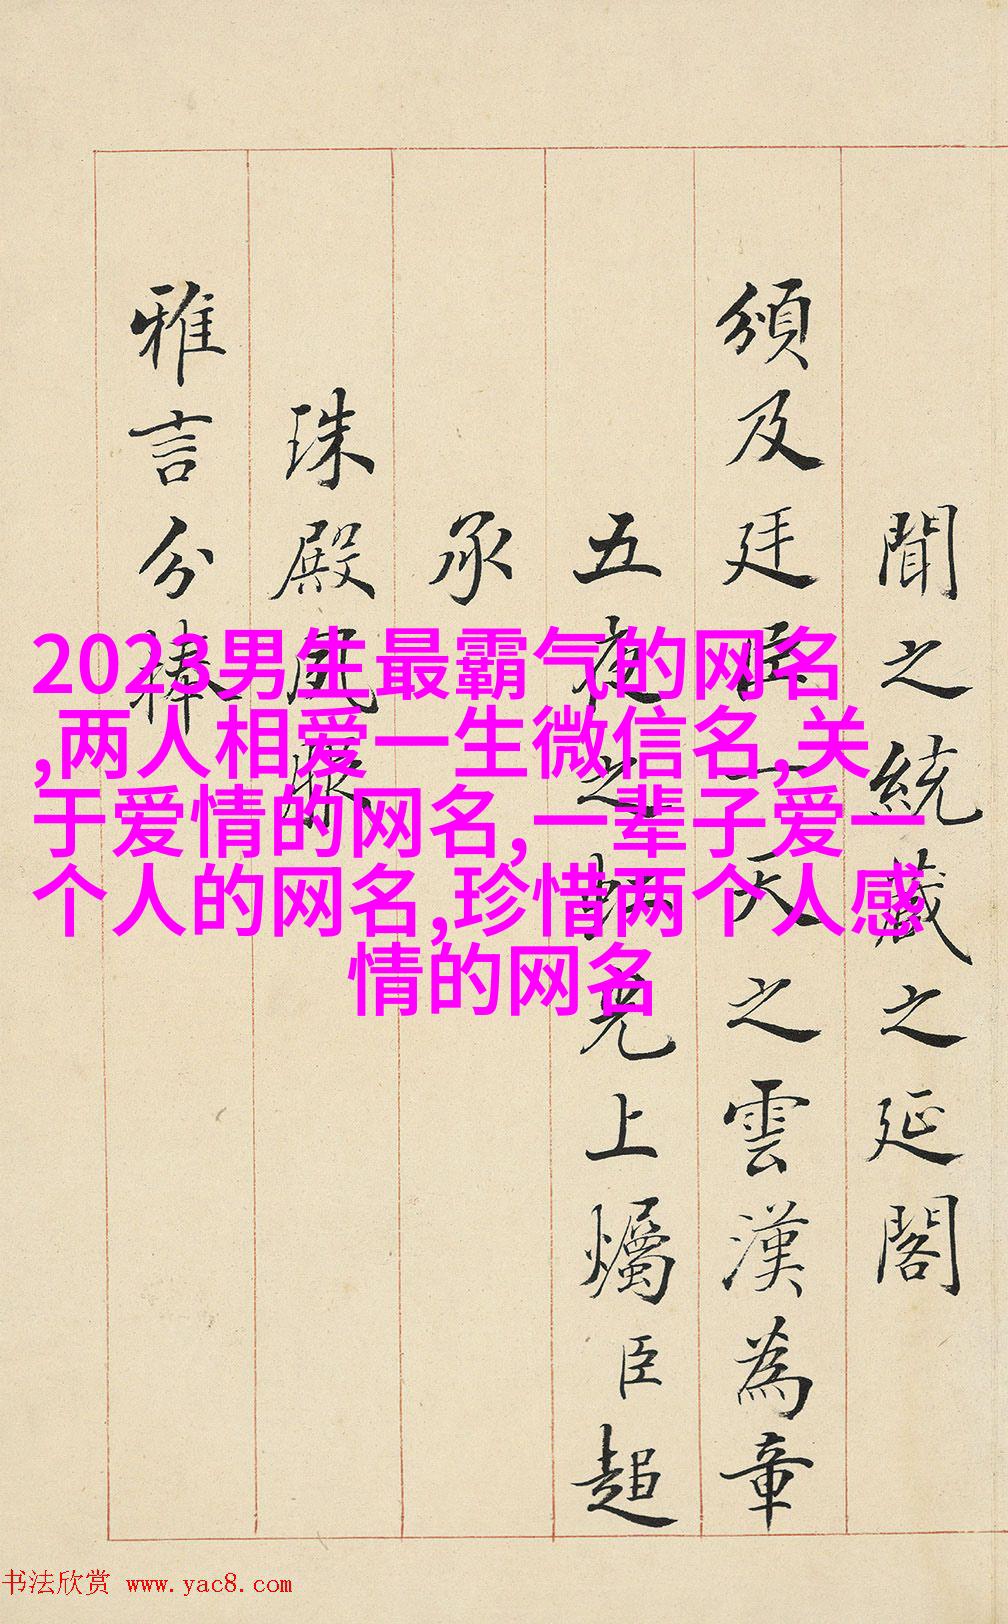 聞之統藏之延閣
頒及廷臣一天之雲漢為章
五夜之光上爥臣超
承
珠殿風
雅言分捧
2023男生最霸气的网名
,两人相爱一生微信名,关
于爱情的网名,一辈子爱一
个人的网名,珍惜两个人感
情的网名
书法欣赏 www.yac8.com